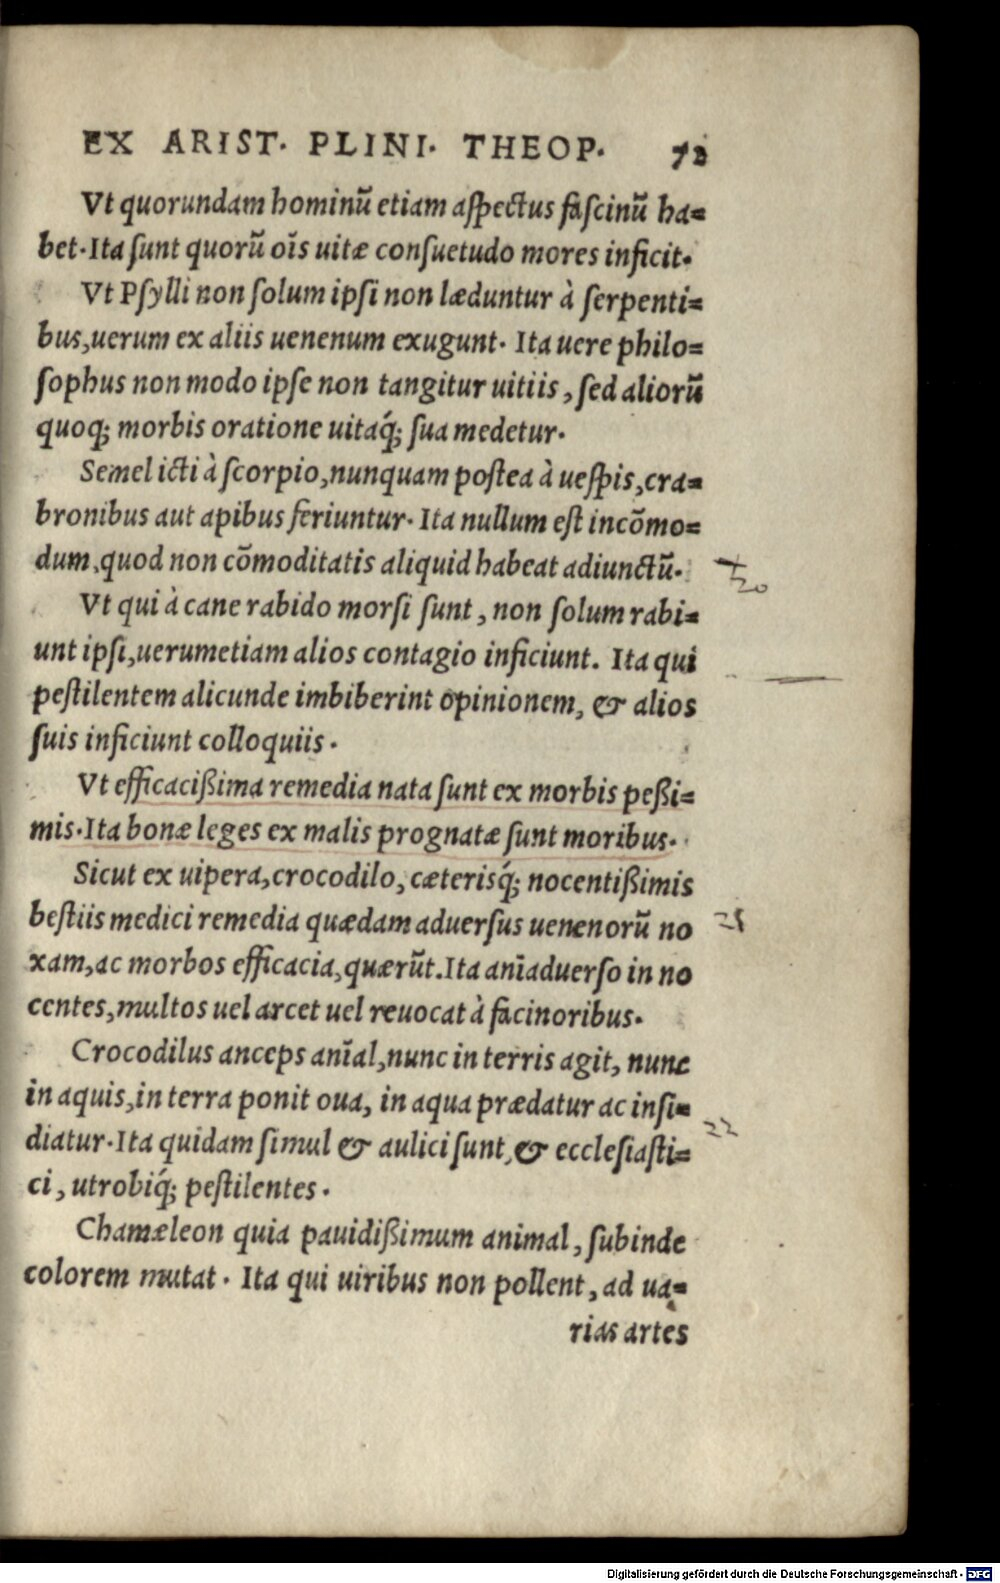 EX ARIST. PLINI. THEOP. 72
Vt quorundam hominũ etiam aſpectus faſcinũ ha=
bet. Ita ſunt quorũ oĩs uitæ conſuetudo mores inficit.
Vt Pſylli non ſolum ipſi non læduntur à ſerpenti=
bus, uerum ex aliis uenenum exugunt. Ita uere philo=
ſophus non modo ipſe non tangitur uitiis, ſed aliorũ
quoq; morbis oratione uitaq́; ſua medetur.
Semel icti à ſcorpio, nunquam poſtea à ueſpis, cra=
bronibus aut apibus feriuntur. Ita nullum eſt incõmo=
dum, quod non cõmoditatis aliquid habeat adiunctũ.
20
Vt qui à cane rabido morſi ſunt, non ſolum rabi=
unt ipſi, uerumetiam alios contagio inficiunt. Ita qui
peſtilentem alicunde imbiberint opinionem, & alios
ſuis inficiunt colloquiis.
Vt efficacißima remedia nata ſunt ex morbis peßi=
mis. Ita bonæ leges ex malis prognatæ ſunt moribus.
Sicut ex uipera, crocodilo, cæterisq́; nocentißimis
beſtiis medici remedia quædam aduerſus uenenorũ no
21
xam, ac morbos efficacia, quærũt. Ita anĩaduerſo in no
centes, multos uel arcet uel reuocat à facinoribus.
Crocodilus anceps anĩal, nunc in terris agit, nunc
in aquis, in terra ponit oua, in aqua prædatur ac inſi=
diatur. Ita quidam ſimul & aulici ſunt, & eccleſiaſti=
22
ci, utrobiq́; peſtilentes.
Chamæleon quia pauidißimum animal, ſubinde
colorem mutat. Ita qui uiribus non pollent, ad ua=
rias artes
Digitalisierung gefördert durch die Deutsche Forschungsgemeinschaft - DFG